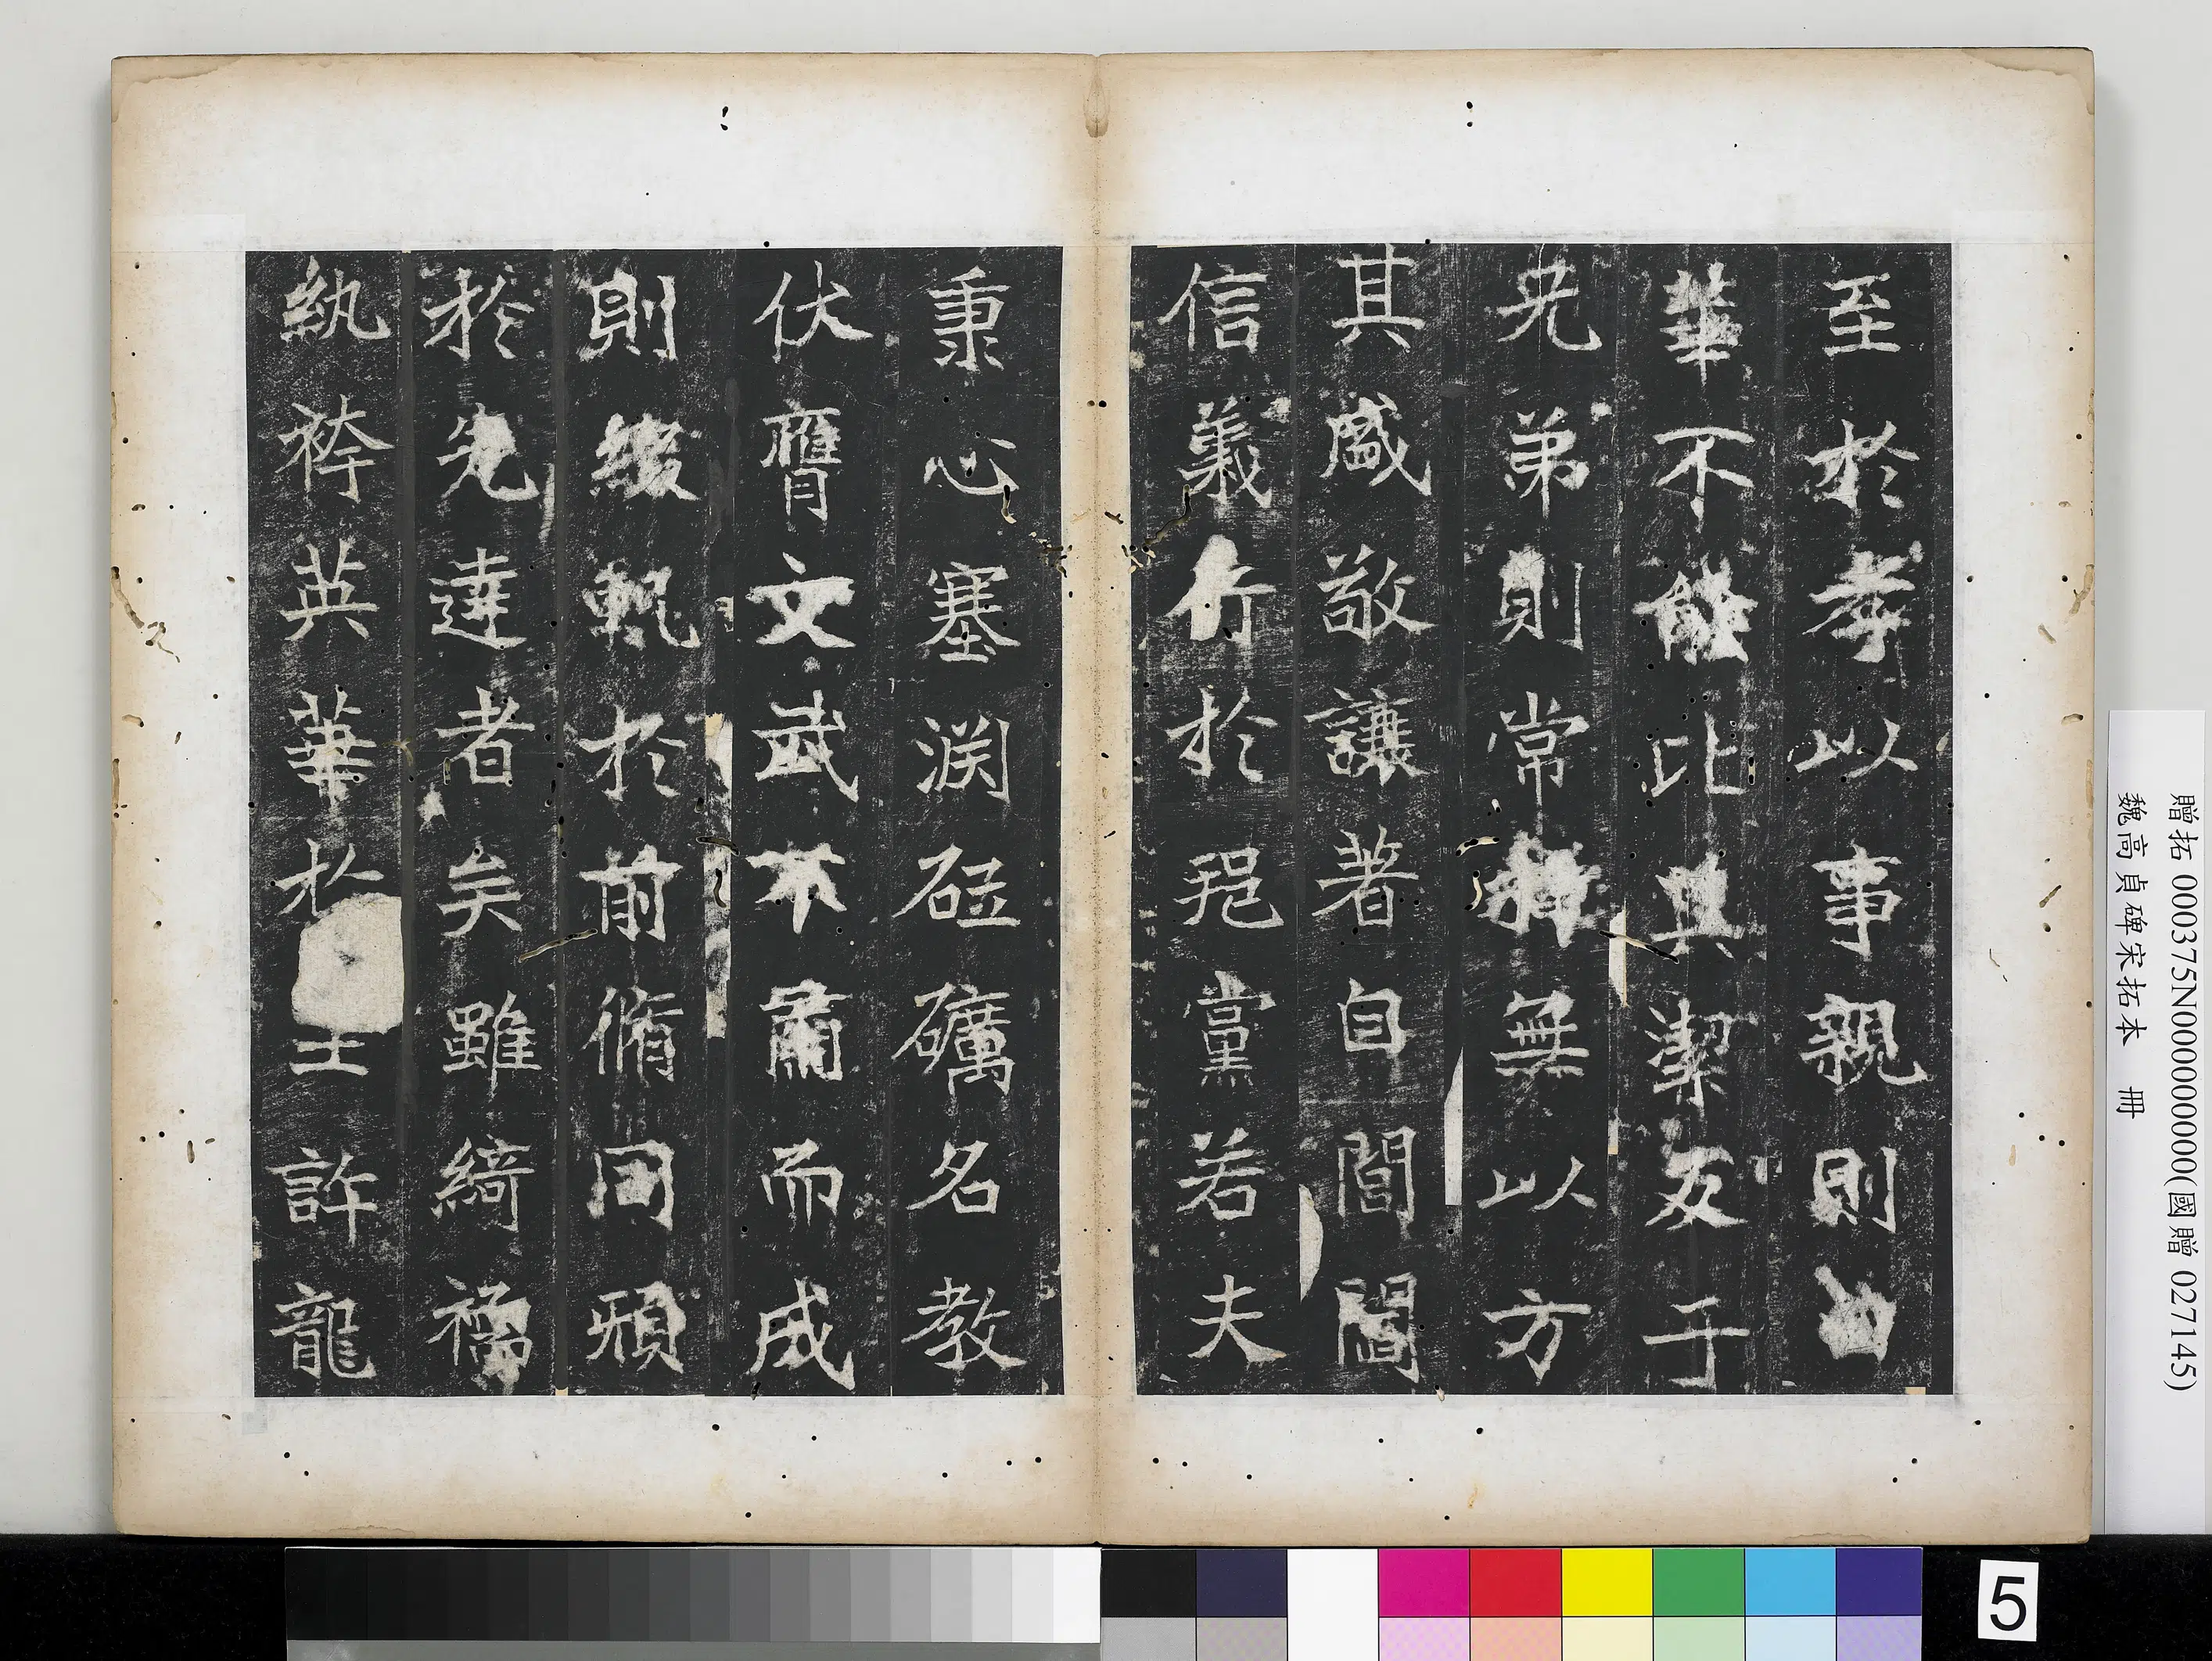 至於孝以事親則白
華不能比其潔友于
兄弟則常棣無以方
其盛敬讓著自閭閻
信義行於鄉黨若夫
秉心塞淵砥礪名教
伏膺文武不肅而成
則綴軌於前脩同
於先達者矣雖綺襦
紈袴英華於王許龍
贈拓 000375N000000000(國贈 027145)
魏高貞碑宋拓本 冊
5